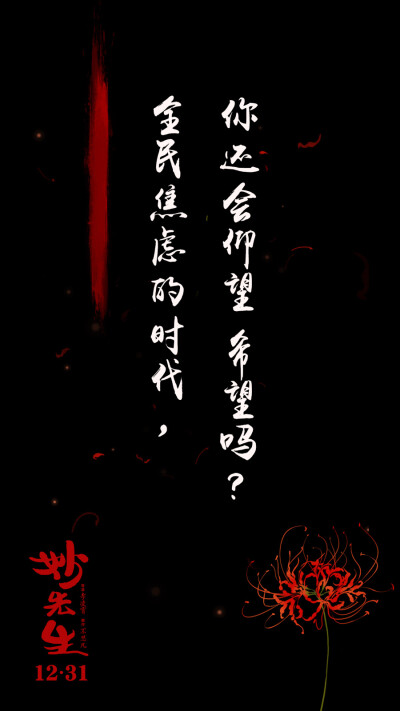 全民焦虑的时代，
你还会仰望 希望吗？
妙先生
12·31